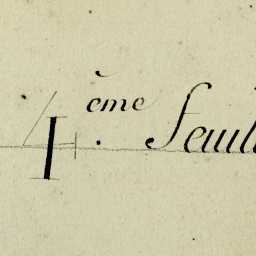 4ème. Feuil